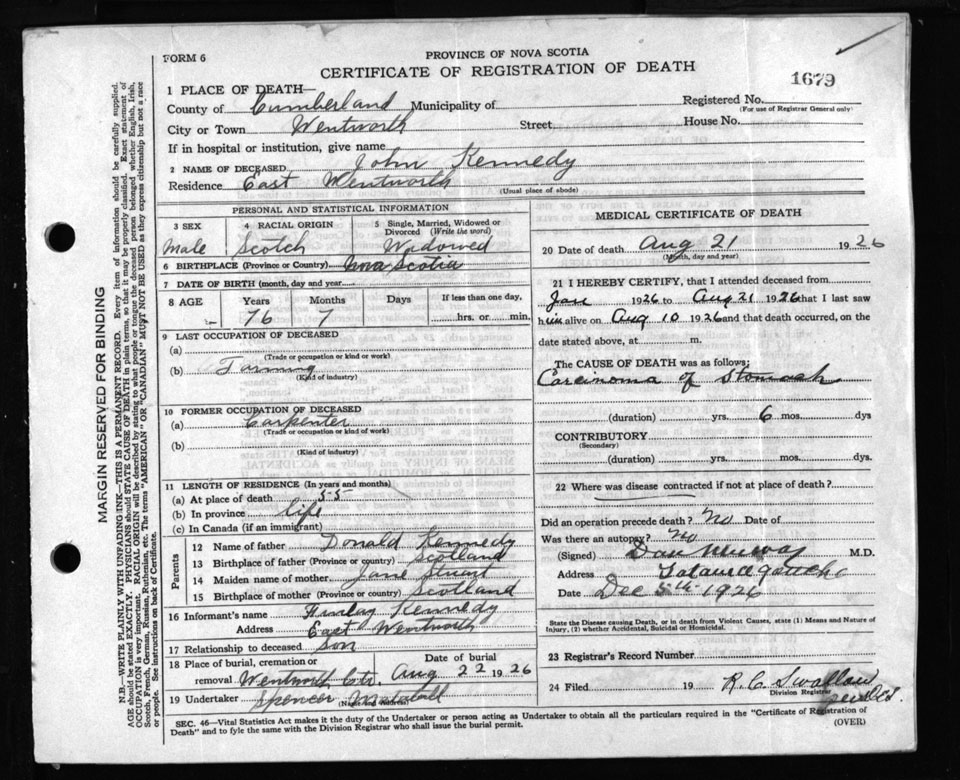 FORM 6
PROVINCE OF NOVA SCOTIA
CERTIFICATE OF REGISTRATION OF DEATH
1679
1 PLACE OF DEATH—
County of Cumberland Municipality of
Registered No.
(For use of Registrar General only)
City or Town Wentworth Street House No.
If in hospital or institution, give name
2 NAME OF DECEASED John Kennedy
Residence East Wentworth
(Usual place of abode)
PERSONAL AND STATISTICAL INFORMATION
3 SEX Male
4 RACIAL ORIGIN Scotch
5 Single, Married, Widowed or Divorced (Write the word) Widowed
6 BIRTHPLACE (Province or Country) Nova Scotia
7 DATE OF BIRTH (month, day and year)
8 AGE Years Months Days If less than one day,
76 7 hrs. or min.
9 LAST OCCUPATION OF DECEASED
(a)
(Trade or occupation or kind or work)
(b) Farming
(Kind of industry)
10 FORMER OCCUPATION OF DECEASED
(a) Carpenter
(Trade or occupation or kind of work)
(b)
(Kind of industry)
11 LENGTH OF RESIDENCE (In years and months)
(a) At place of death 55
(b) In province life
(c) In Canada (if an immigrant)
Parents
12 Name of father Donald Kennedy
13 Birthplace of father (Province or country) Scotland
14 Maiden name of mother Jane Stuart
15 Birthplace of mother (Province or Country) Scotland
16 Informant's name Finlay Kennedy
Address East Wentworth
17 Relationship to deceased Son
18 Place of burial, cremation or Date of burial
removal Wentworth Aug 22 1926
19 Undertaker Spencer
(Name and Address)
MEDICAL CERTIFICATE OF DEATH
20 Date of death Aug 21 1926
(Month, day and year)
21 I HEREBY CERTIFY, that I attended deceased from
Jan 1926 to Aug 21 1926 that I last saw
him alive on Aug 10 1926 and that death occurred, on
date stated above, at m.
The CAUSE OF DEATH was as follows:
Carcinoma of Stomach
(duration) yrs. 6 mos. dys
CONTRIBUTORY
(Secondary)
(duration) yrs. mos. dys.
22 Where was disease contracted if not at place of death?
Did an operation precede death? No Date of
Was there an autopsy? No
(Signed) Dan M.D.
Address Tatamagouche
Date Dec 5th 1926
State the Disease causing Death, or in death from Violent Causes, state (1) Means and Nature of
Injury, (2) whether Accidental, Suicidal or Homicidal.
23 Registrar's Record Number
24 Filed 19 R. C. Swallow
Division Registrar
SEC. 46—Vital Statistics Act makes it the duty of the Undertaker or person acting as Undertaker to obtain all the particulars required in the "Certificate of Registration of
Death" and to fyle the same with the Division Registrar who shall issue the burial permit.
(OVER)
MARGIN RESERVED FOR BINDING
N.B.—WRITE PLAINLY WITH UNFADING INK—THIS IS A PERMANENT RECORD. Every item of information should be carefully supplied.
AGE should be stated EXACTLY. PHYSICIANS should STATE CAUSE OF DEATH in plain terms, so that it may be properly classified. Exact statement of
OCCUPATION is very important. RACIAL ORIGIN will be described by stating to what people or tongue the deceased person belonged whether English, Irish,
Scotch, French, German, Russian, Ruthenian, etc. The terms "AMERICAN" OR "CANADIAN" MUST NOT BE USED as they express citizenship but not a race
or people. See instructions on back of Certificate.